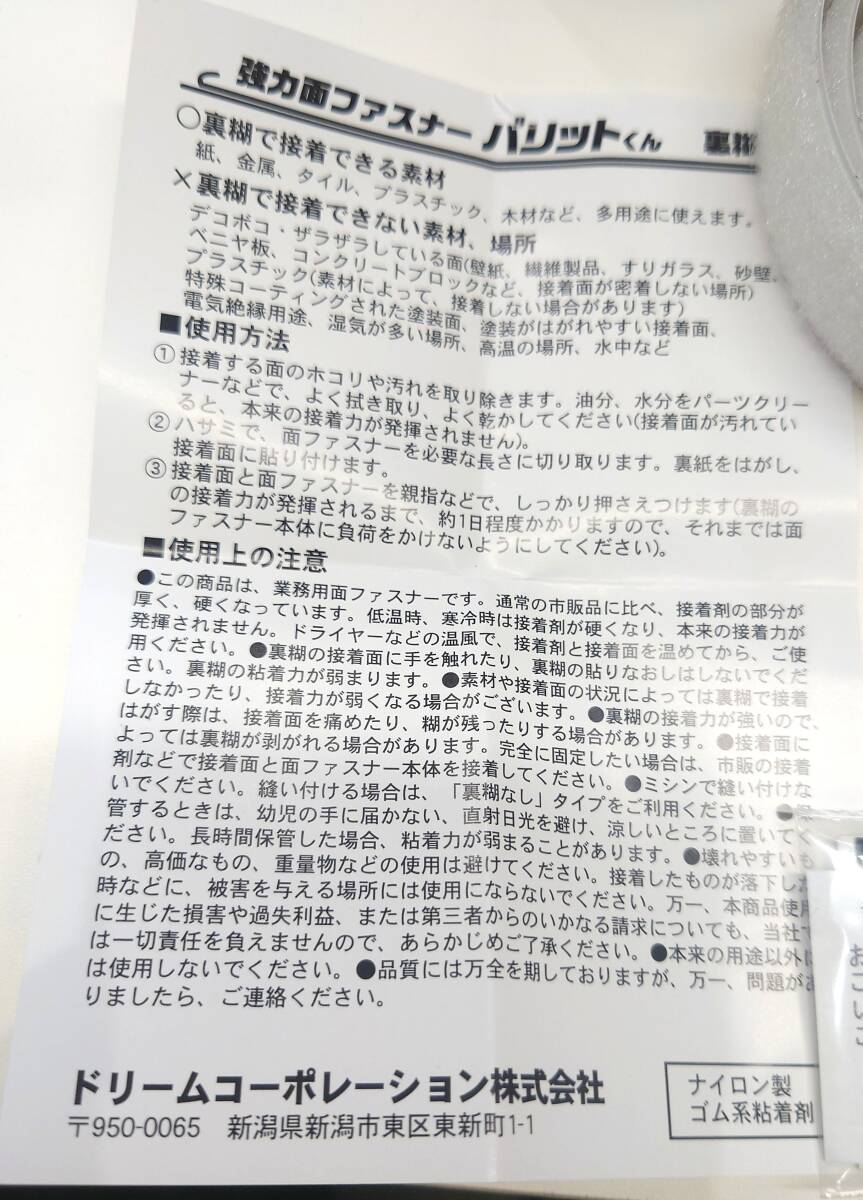 強力面ファスナー バリットくん 裏糊
○裏糊で接着できる素材
紙、金属、タイル、プラスチック、木材など、多用途に使えます。
×裏糊で接着できない素材、場所
デコボコ・ザラザラしている面(壁紙、繊維製品、すりガラス、砂壁、
ベニヤ板、コンクリートブロックなど、接着面が密着しない場所)
プラスチック(素材によって、接着しない場合があります)
特殊コーティングされた塗装面、塗装がはがれやすい接着面、
電気絶縁用途、湿気が多い場所、高温の場所、水中など
■使用方法
①接着する面のホコリや汚れを取り除きます。油分、水分をパーツクリー
ナーなどで、よく拭き取り、よく乾かしてください(接着面が汚れてい
ると、本来の接着力が発揮されません)。
②ハサミで、面ファスナーを必要な長さに切り取ります。裏紙をはがし、
接着面に貼り付けます。
③接着面と面ファスナーを親指などで、しっかり押さえつけます(裏糊の
の接着力が発揮されるまで、約1日程度かかりますので、それまでは面
ファスナー本体に負荷をかけないようにしてください)。
■使用上の注意
●この商品は、業務用面ファスナーです。通常の市販品に比べ、接着剤の部分が
厚く、硬くなっています。低温時、寒冷時は接着剤が硬くなり、本来の接着力が
発揮されません。ドライヤーなどの温風で、接着剤と接着面を温めてから、ご使
用ください。●裏糊の接着面に手を触れたり、裏糊の貼りなおしはしないでくだ
さい。裏糊の粘着力が弱まります。●素材や接着面の状況によっては裏糊で接着
しなかったり、接着力が弱くなる場合がございます。●裏糊の接着力が強いので、
はがす際は、接着面を痛めたり、糊が残ったりする場合があります。●接着面に
よっては裏糊が剥がれる場合があります。完全に固定したい場合は、市販の接着
剤などで接着面と面ファスナー本体を接着してください。●ミシンで縫い付けな
いでください。縫い付ける場合は、「裏糊なし」タイプをご利用ください。●保
管するときは、幼児の手に届かない、直射日光を避け、涼しいところに置いてく
ださい。長時間保管した場合、粘着力が弱まることがあります。●壊れやすいも
の、高価なもの、重量物などの使用は避けてください。接着したものが落下した
時などに、被害を与える場所には使用にならないでください。万一、本商品使用
に生じた損害や過失利益、または第三者からのいかなる請求についても、当社で
は一切責任を負えませんので、あらかじめご了承ください。●本来の用途以外に
は使用しないでください。●品質には万全を期しておりますが、万一、問題があ
りましたら、ご連絡ください。
ドリームコーポレーション株式会社
〒950-0065 新潟県新潟市東区東新町1-1
ナイロン製
ゴム系粘着剤